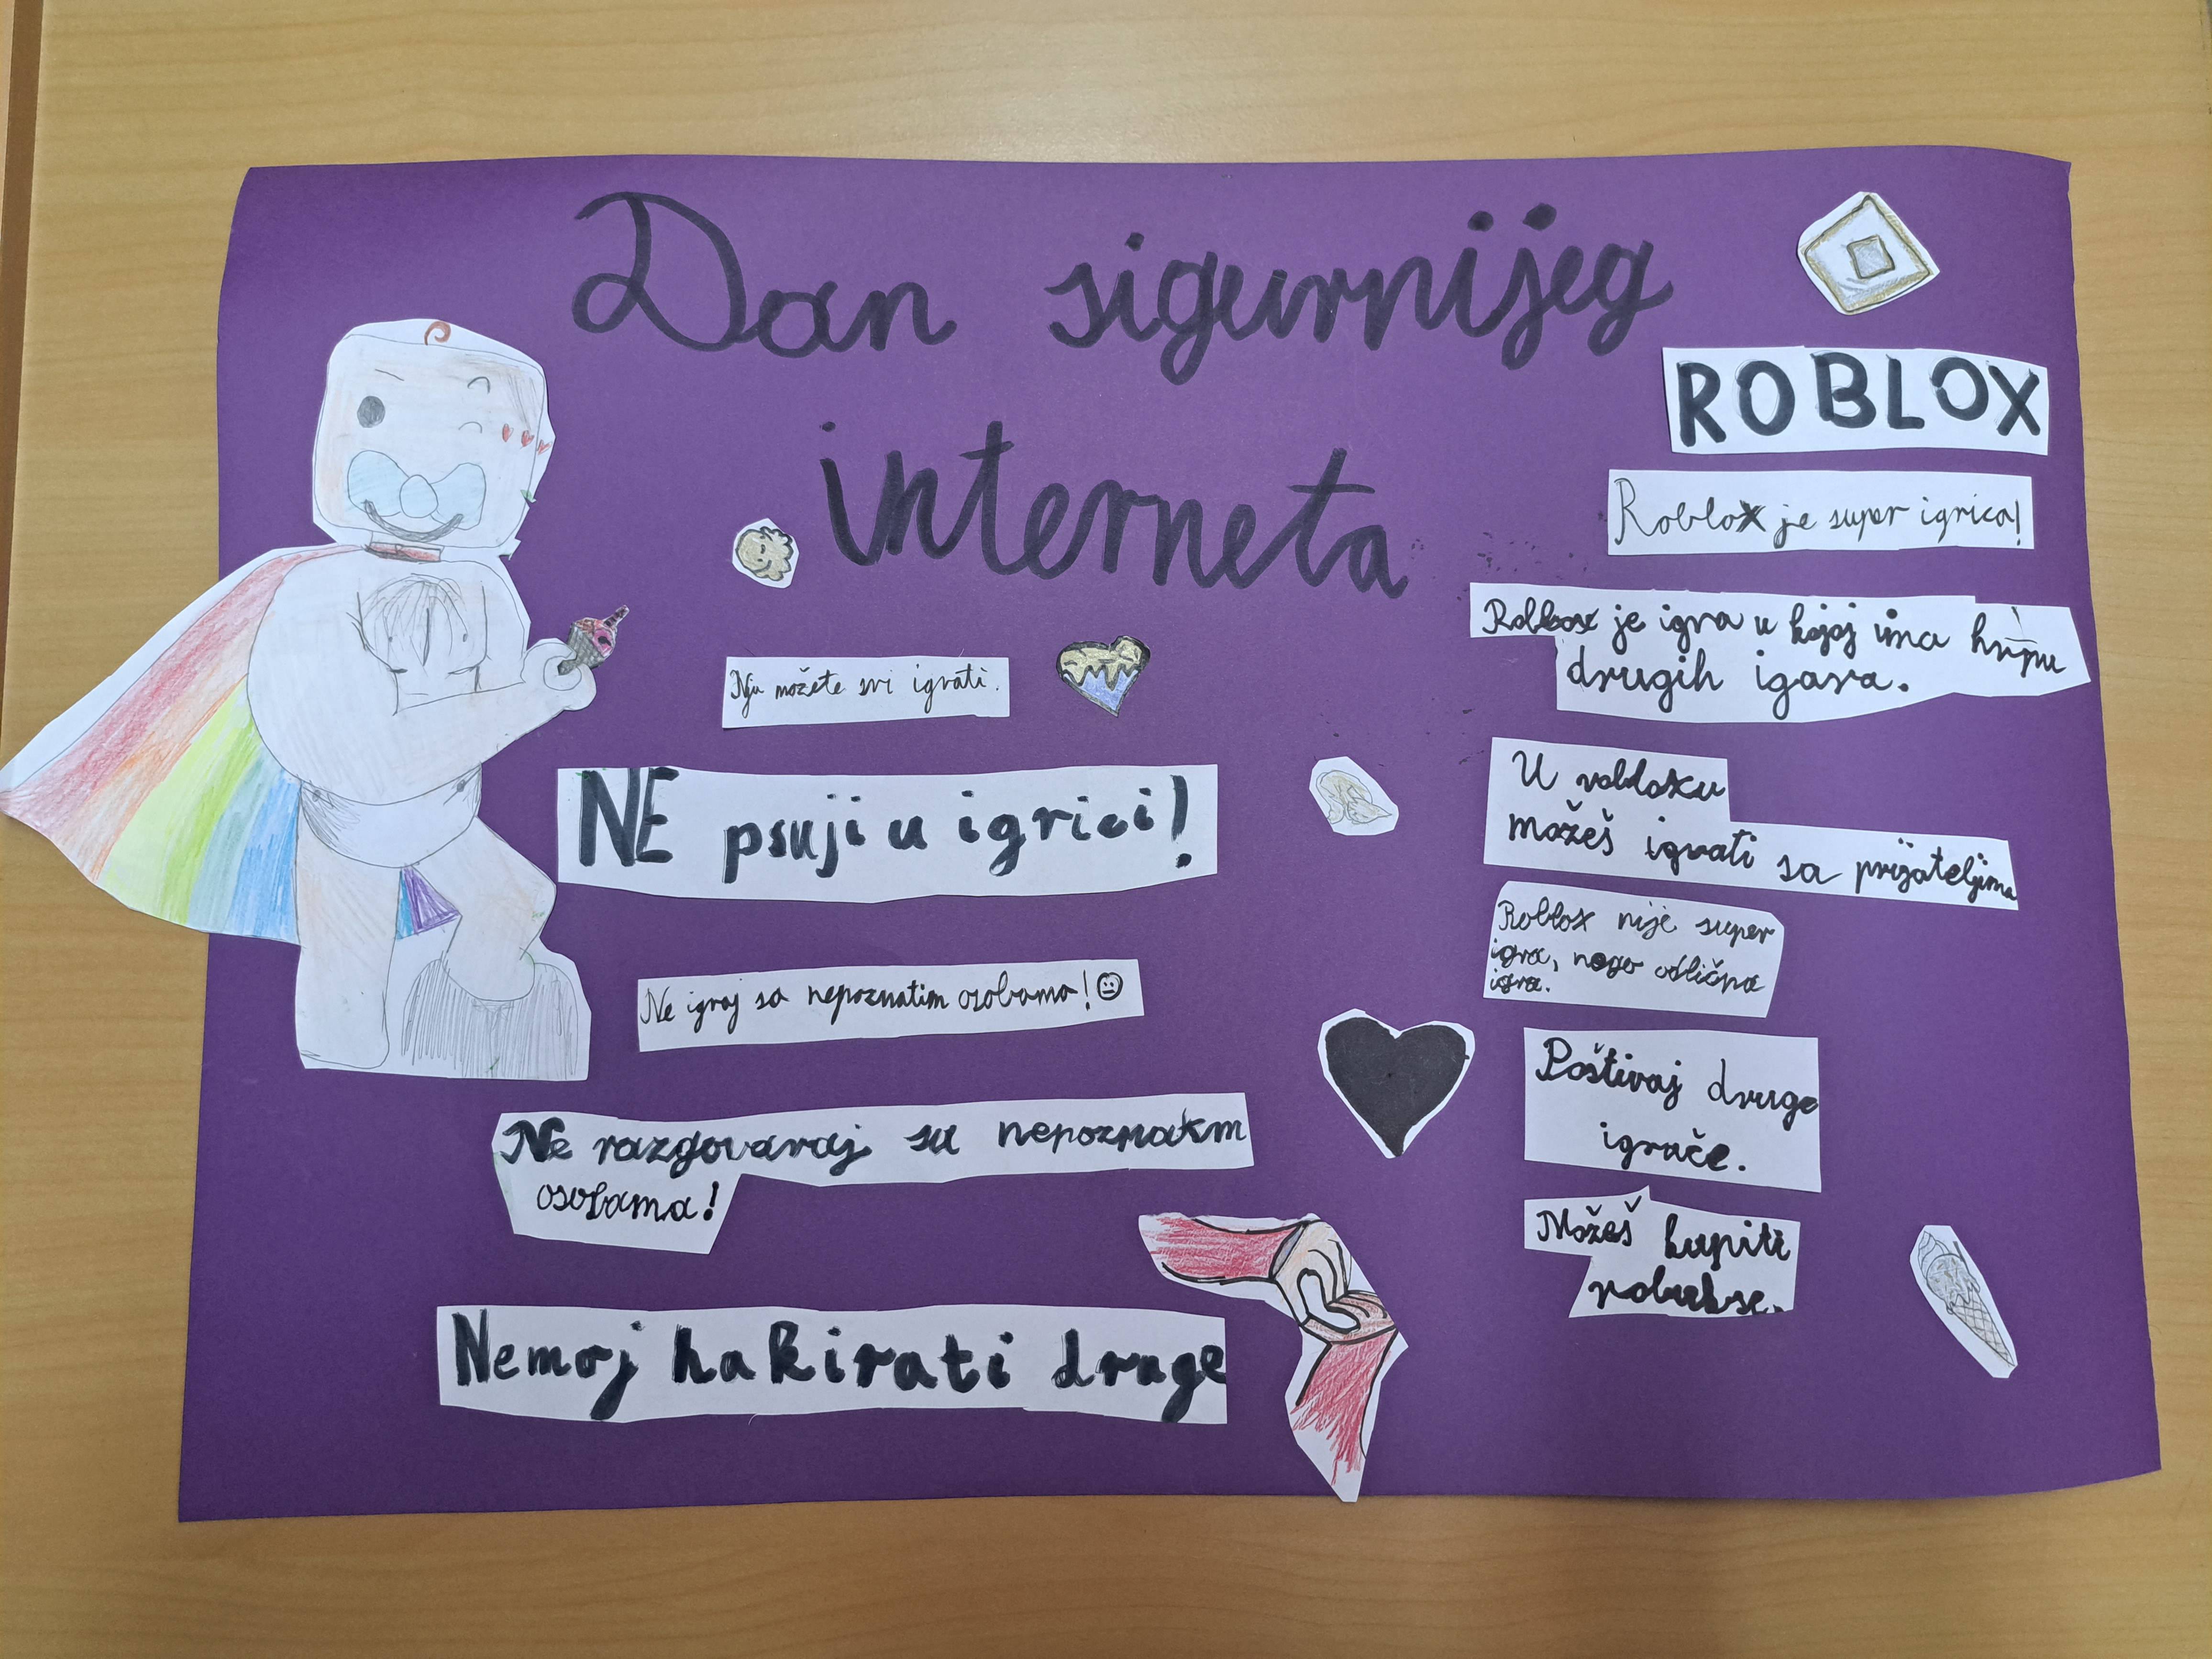 Dan sigurnijeg
interneta
ROBLOX
Roblox je super igrica!
Roblox je igra u kojoj ima hrpu
drugih igara.
U robloxu
možeš igrati sa prijateljima
Roblox nije super
igra, nego odlična
igra.
Poštivaj druge
igrače.
Možeš kupiti
robukse.
Nju možete svi igrati.
NE psuji u igrici!
Ne igraj sa nepoznatim osobama!
Ne razgovaraj sa
osobama!
Nemoj hakirati druge